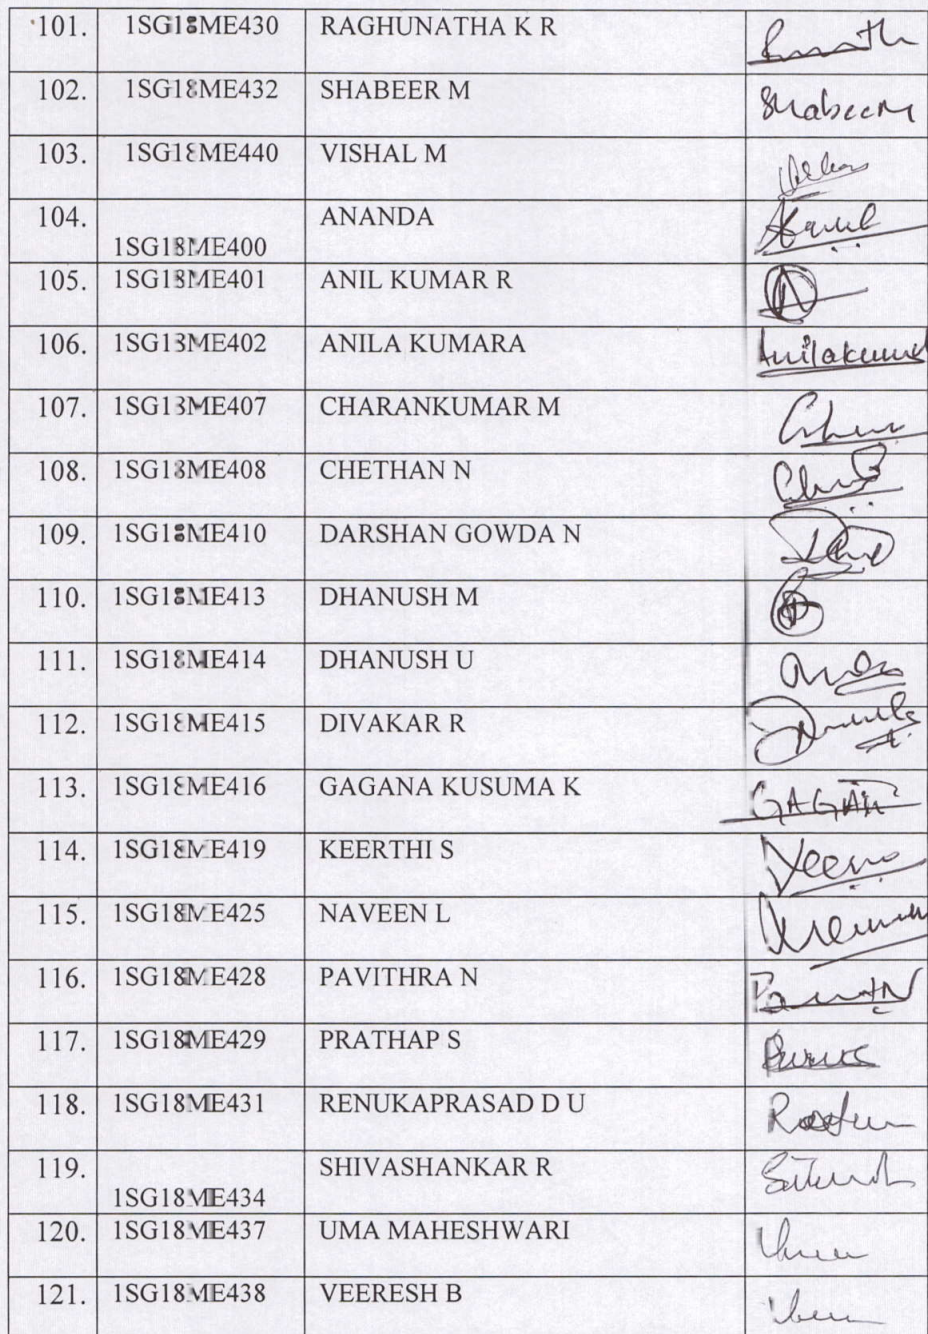 101. 1SG18ME430 RAGHUNATHA K R
102. 1SG18ME432 SHABEER M Shabeer M
103. 1SG18ME440 VISHAL M
104. 1SG18ME400 ANANDA
105. 1SG18ME401 ANIL KUMAR R
106. 1SG18ME402 ANILA KUMARA Anilakumar
107. 1SG18ME407 CHARANKUMAR M
108. 1SG18ME408 CHETHAN N
109. 1SG18ME410 DARSHAN GOWDA N
110. 1SG18ME413 DHANUSH M
111. 1SG18ME414 DHANUSH U
112. 1SG18ME415 DIVAKAR R
113. 1SG18ME416 GAGANA KUSUMA K
114. 1SG18ME419 KEERTHI S
115. 1SG18ME425 NAVEEN L
116. 1SG18ME428 PAVITHRA N
117. 1SG18ME429 PRATHAP S
118. 1SG18ME431 RENUKAPRASAD D U
119. 1SG18ME434 SHIVASHANKAR R
120. 1SG18ME437 UMA MAHESHWARI
121. 1SG18ME438 VEERESH B